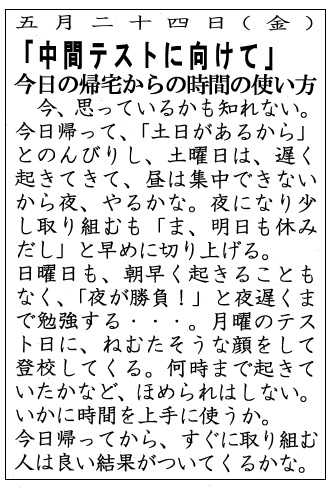 五月二十四日(金)
「中間テストに向けて」
今日の帰宅からの時間の使い方
今、思っているかも知れない。
今日帰って、「土日があるから」
とのんびりし、土曜日は、遅く
起きてきて、昼は集中できない
から夜、やるかな。夜になり少
し取り組むも「ま、明日も休み
だし」と早めに切り上げる。
日曜日も、朝早く起きることも
なく、「夜が勝負！」と夜遅くま
で勉強する・・・。月曜のテス
ト日に、ねむたそうな顔をして
登校してくる。何時まで起きて
いたかなど、ほめられはしない。
いかに時間を上手に使うか。
今日帰ってから、すぐに取り組む
人は良い結果がついてくるかな。